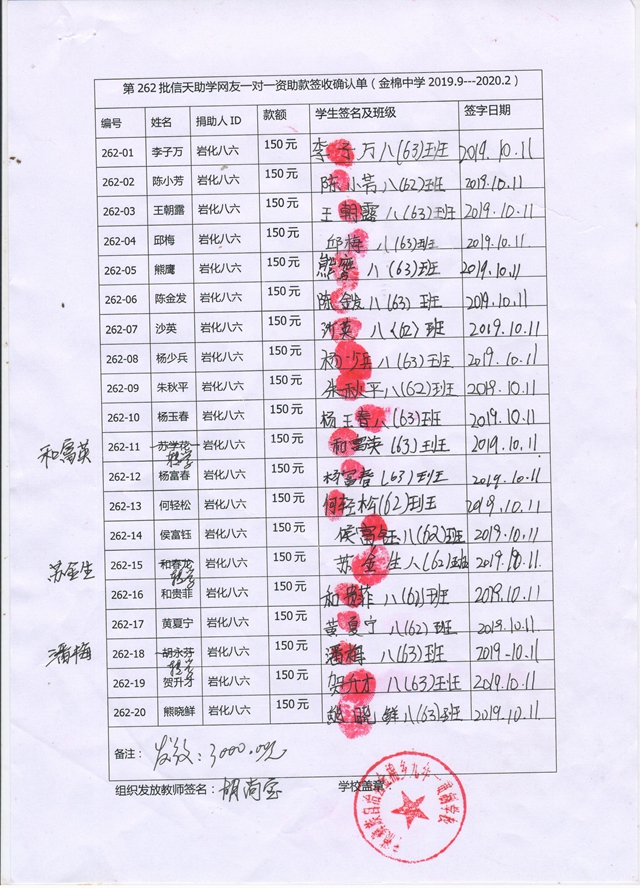 第 262 批信天助学网友一对一资助款签收确认单（金棉中学 2019.9---2020.2）
编号 姓名 捐助人 ID 款额 学生签名及班级 签字日期
262-01 李子万 岩化八六 150 元 李子万 八(63)班 2019.10.11
262-02 陈小芳 岩化八六 150 元 陈小芳 八(62)班 2019.10.11
262-03 王朝露 岩化八六 150 元 王朝露 八(63)班 2019.10.11
262-04 邱梅 岩化八六 150 元 邱梅 八(63)班 2019.10.11
262-05 熊鹰 岩化八六 150 元 熊鹰 八(63)班 2019.10.11
262-06 陈金发 岩化八六 150 元 陈金发 八(63) 班 2019.10.11
262-07 沙英 岩化八六 150 元 沙英 八(62) 班 2019.10.11
262-08 杨少兵 岩化八六 150 元 杨少兵 八(63)班 2019.10.11
262-09 朱秋平 岩化八六 150 元 朱秋平 八(62)班 2019.10.11
262-10 杨玉春 岩化八六 150 元 杨玉春 八(63)班 2019.10.11
和富英 262-11 苏学花 转学 岩化八六 150 元 和富英 (63)班 2019.10.11
262-12 杨富春 岩化八六 150 元 杨富春 (63)班 2019.10.11
262-13 何轻松 岩化八六 150 元 何轻松(62)班 2019.10.11
262-14 侯富钰 岩化八六 150 元 侯富钰 八(62)班 2019.10.11
苏金生 262-15 和春龙 转学 岩化八六 150 元 苏金生 八(62)班 2019.10.11
262-16 和贵菲 岩化八六 150 元 和贵菲 八(62)班 2019.10.11
262-17 黄夏宁 岩化八六 150 元 黄夏宁 八(62)班 2019.10.11
潘梅 262-18 胡永芬 转学 岩化八六 150 元 潘梅 八(63)班 2019.10.11
262-19 贺升才 岩化八六 150 元 贺升才 八(63)班 2019.10.11
262-20 熊晓鲜 岩化八六 150 元 熊晓鲜 八(63)班 2019.10.11
备注： 发放：3000.00元
组织发放教师签名：胡尚宝 学校盖章：
族自治 棉乡九年一贯制学校